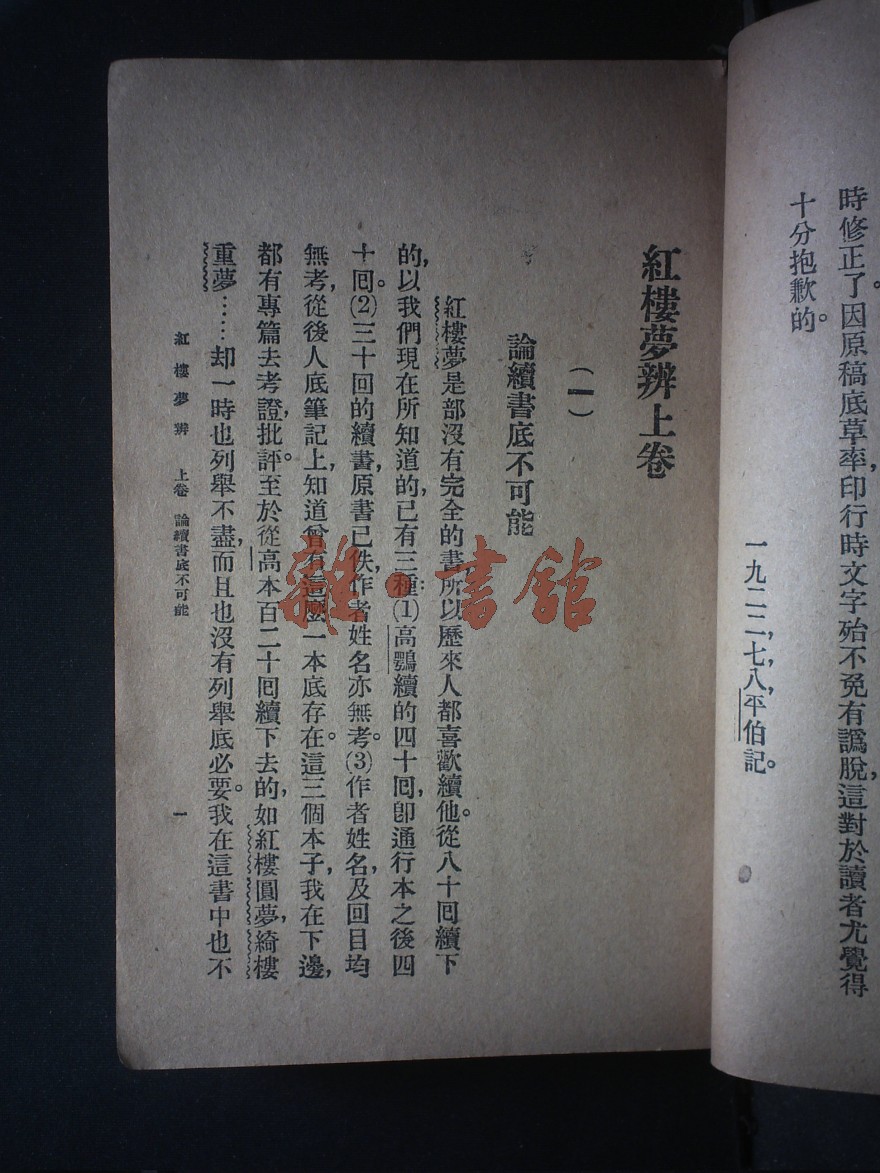 時修正了。因原稿底草率，印行時文字殆不免有譌脫，這對於讀者尤覺得
十分抱歉的。
一九二二，七，八，平伯記。
紅樓夢辨上卷
（一）
論續書底不可能
紅樓夢是部沒有完全的書，所以歷來人都喜歡續他。從八十回續下
的，以我們現在所知道的，已有三種：(1)高鶚續的四十回，卽通行本之後四
十回。(2)三十回的續書，原書已佚，作者姓名亦無考。(3)作者姓名，及回目均
無考，從後人底筆記上，知道曾有這麼一本底存在。這三個本子，我在下邊，
都有專篇去考證，批評。至於從高本百二十回續下去的，如紅樓圓夢，綺樓
重夢……却一時也列舉不盡，而且也沒有列舉底必要。我在這書中也不
紅樓夢辨 上卷 論續書底不可能
一
雜·書館